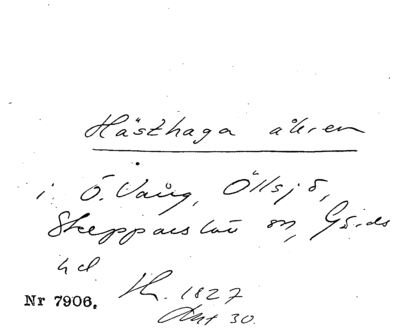 Hästhaga åkren
i Ö. Vång, Öllsjö,
Skepparslöv sn, Gärds
hd
Nr 7906. 1827
30.